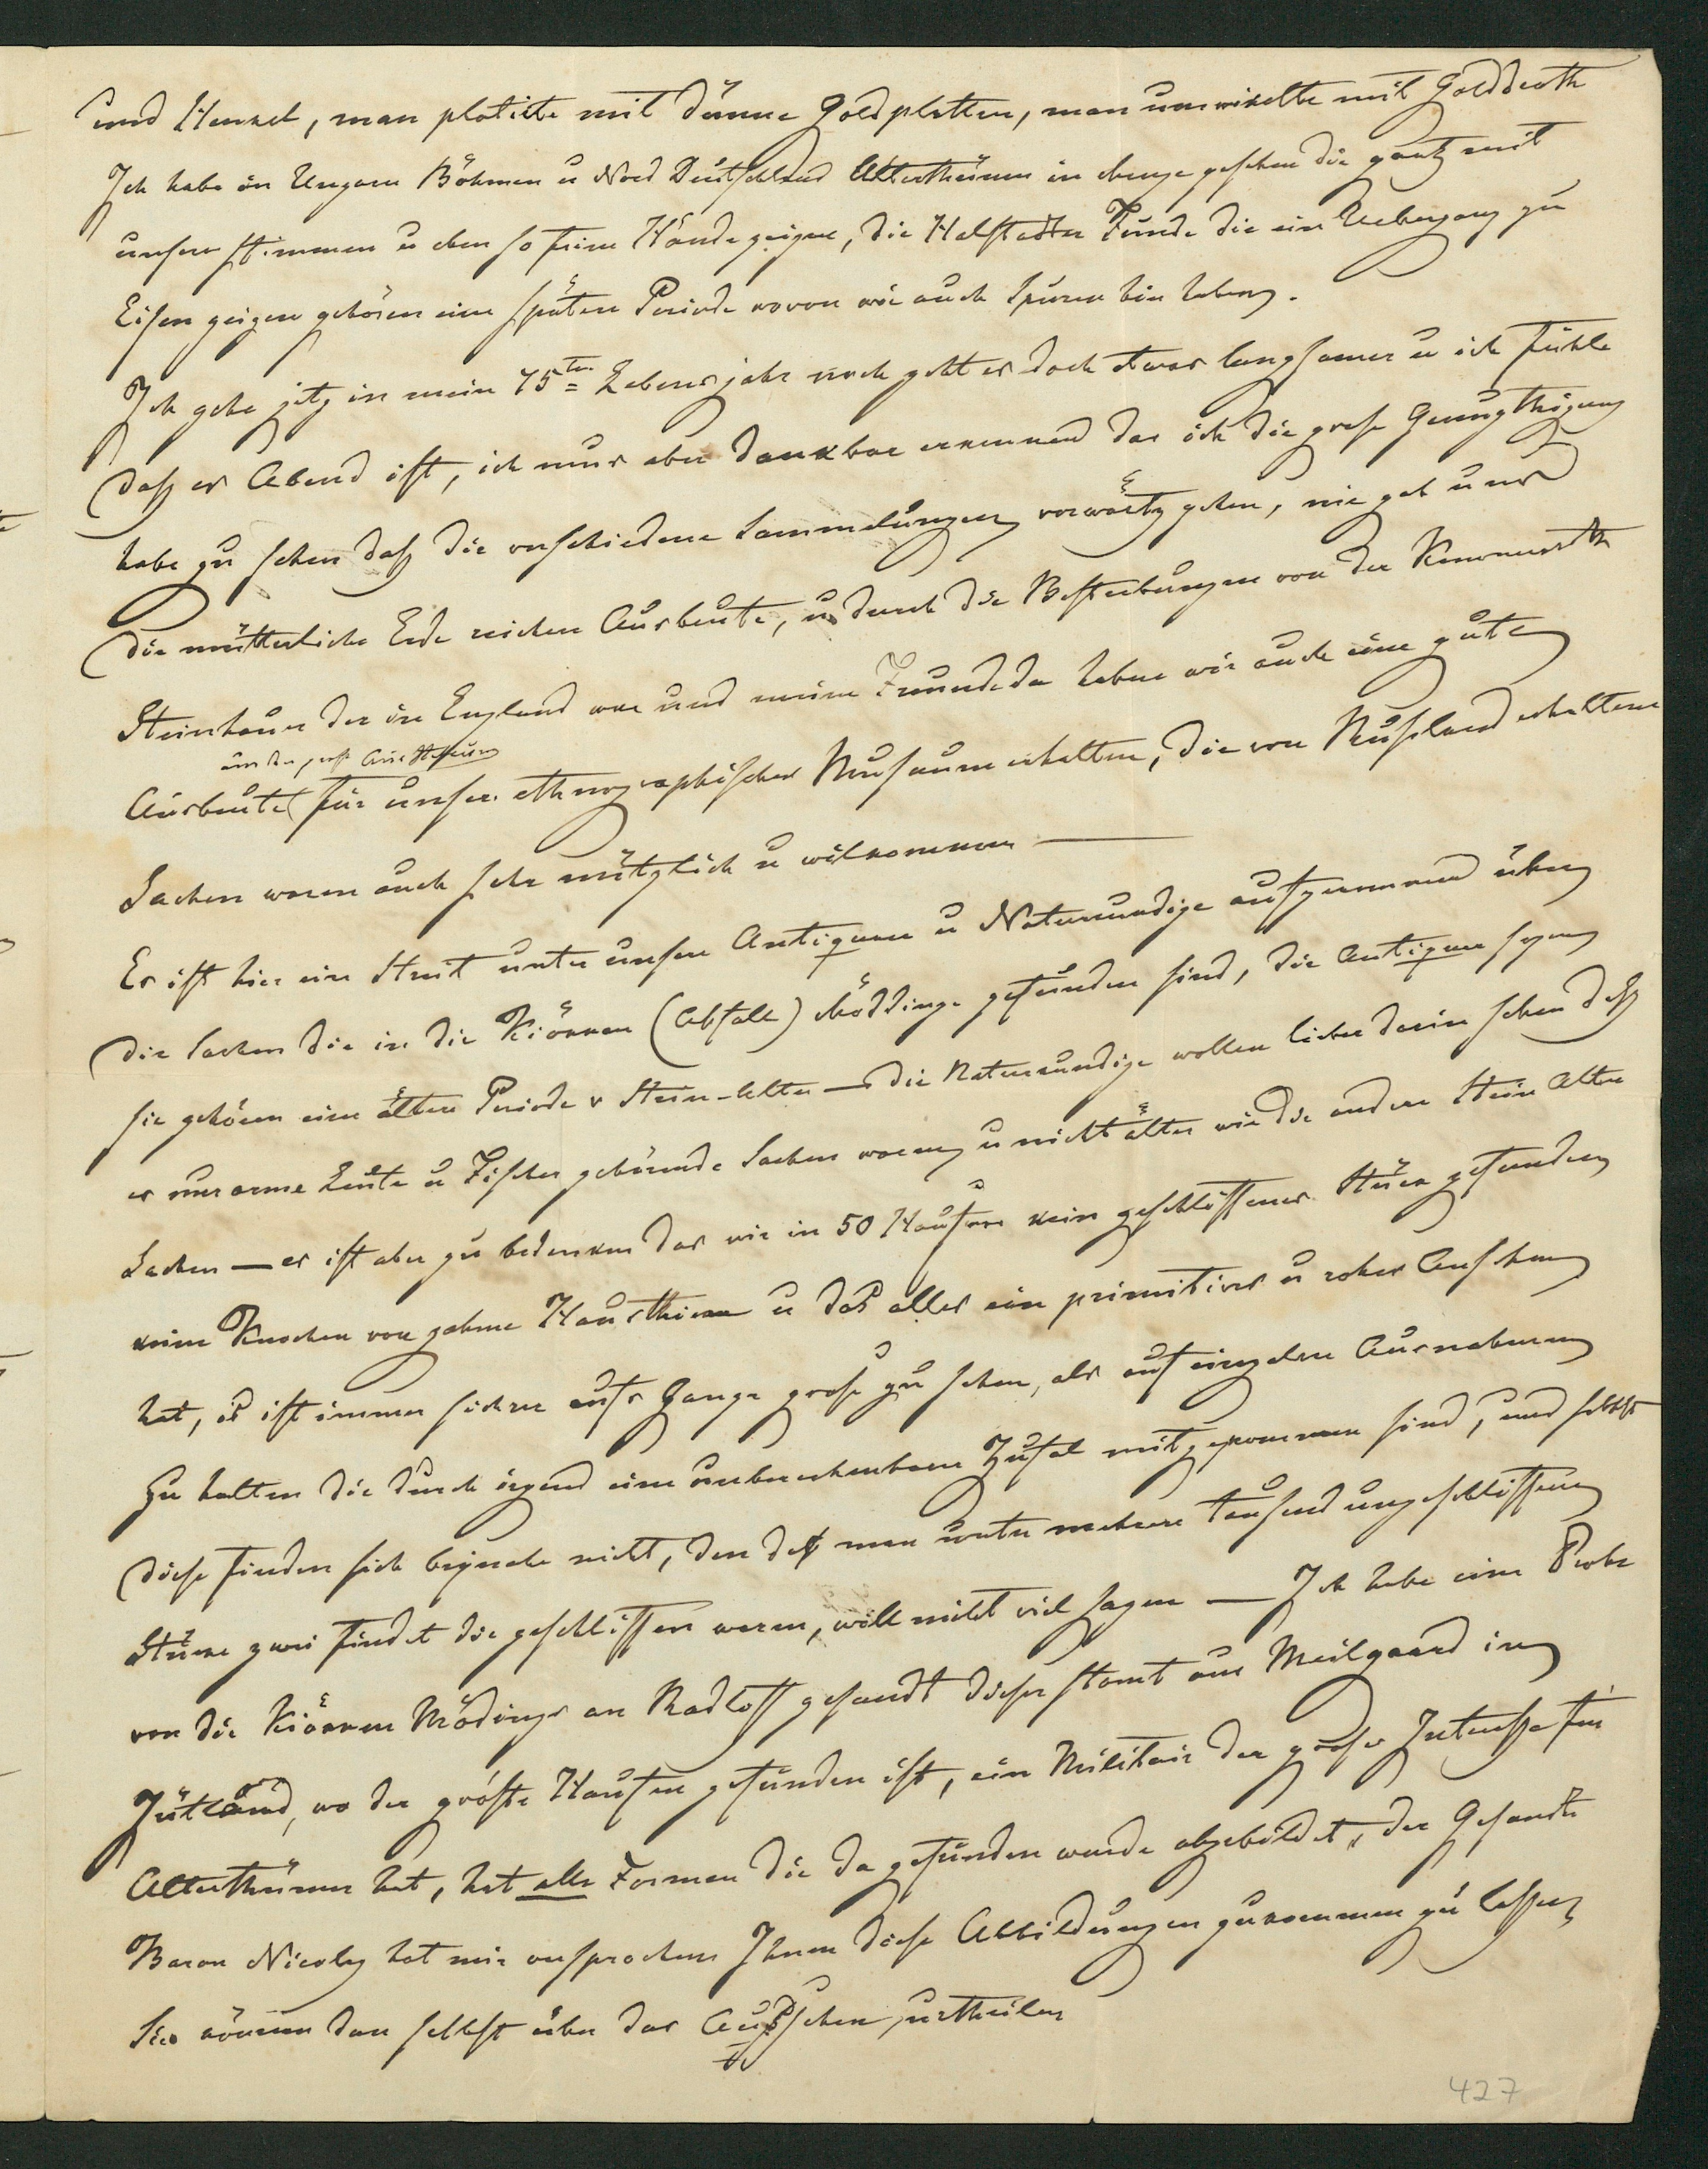 und Henkel, man platirte mit dünne Goldplatten, man umwikelte mit Golddrath
Ich habe in Ungarn Böhmen u Nord Deutschland Alterthümer in menge gesehen die gantz mit
unsere stimmen u eben so feine Hände zeigen, die Halstadter Funde die ein Uebergang zu
Eisen zeigen gehören eine spätere Periode wovon wir auch Spuren hier haben.
Ich gehe jetz in mein 75ten Lebensjahr noch geht es doch etwas langsamer u ich fühle
daß es Abend ist, ich mus aber dankbar erkennend das ich die große Genungthigung
habe zu sehen daß die verschiedene Sammelungen vorwärtz gehen, nie gab uns
die mütterliche Erde reichere Ausbeute, u durch die Bestrebungen von der Kammerrath
Steinhauer der in England war und meine Freunde da haben wir auch eine gute
aus der große Ausstellung
Ausbeute für unser ethnographisches Musaeum erhalten, die von Rusland erhaltene
Sachen waren auch sehr nützlich u wilkommen —
Es ist hier ein Streit unter unsere Antiquare u Naturkundige aufgekommen über
die Sachen die in die Kiökken (Abfall) Möddinge gefunden sind, die Antiquare sagen
sie gehören eine ältere Periode v Stein-Alter — die Naturkundige wollen lieber darin sehen daß
es nur arme Leute u Fischer gehörende Sachen waren u nicht älter wie die andere Stein Alter
Sachen — es ist aber zu bedenken das wir in 50 Haufen kein geschliffenes Stück gefunden
keine Knochen von zahme Hausthiere u das alles ein primitives u rohes Ansehen
hat, es ist immer sicherer aufs Ganze große zu sehen, als auf einzelne Ausnahmen
zu halten die durch irgend eine unberechenbare Zufal mitgekommen sind, und selbst
diese finden sich beynahe nicht, den daß man unter mehrere Tausend ungeschliffene
Stücke zwei findet die geschliffen waren, will nicht viel sagen — Ich habe eine Probe
von die Kiökken Mödings an Radloff gesandt dieser stamt aus Meilgaard in
Jütland, wo der größte Haufen gefunden ist, ein Militair der großes Interesse für
Alterthümer hat, hat alle Formen die da gefunden wurde abgebildet, der Gesandte
Baron Nicolay hat mir versprochen Ihnen diese Abbildungen zukommen zu lassen
Sie können dan selbst über das Aussehen urtheilen
427